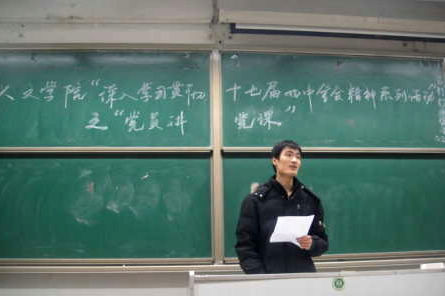 人文学院“深入学习贯彻十七届四中全会精神系列活动
之“党员讲党课”